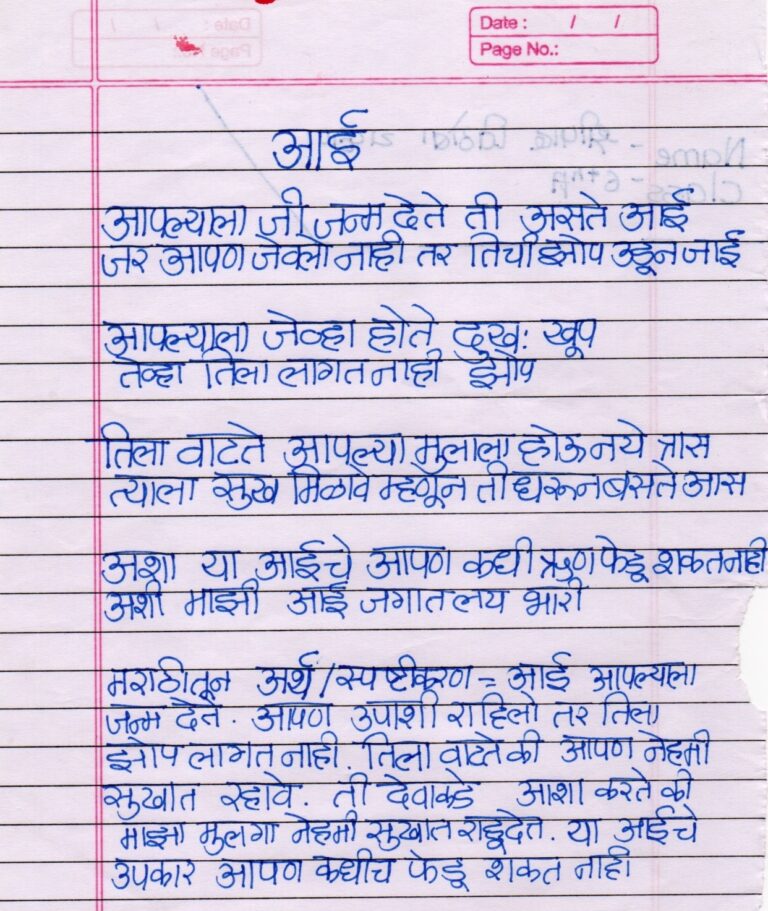 Date : / /
Page No.:
आई
आपल्याला जी जन्म देते ती असते आई
जर आपण जेवलो नाही तर तिची झोप उडून जाई
आपल्याला जेव्हा होते दुख: खूप
तेव्हा तिला लागत नाही झोप
तिला वाटते आपल्या मुलाला होऊ नये त्रास
त्याला सुख मिळावे म्हणून ती धरून बसते आस
अशा या आईचे आपण कधी ऋण फेडू शकत नाही
अशी माझी आई जगात लय भारी
मराठीतून अर्थ/स्पष्टीकरण = आई आपल्याला
जन्म देते. आपण उपाशी राहिलो तर तिला
झोप लागत नाही. तिला वाटते की आपण नेहमी
सुखात रहावे. ती देवाकडे आशा करते की
माझा मुलगा नेहमी सुखात राहू देत. या आईचे
उपकार आपण कधीच फेडू शकत नाही